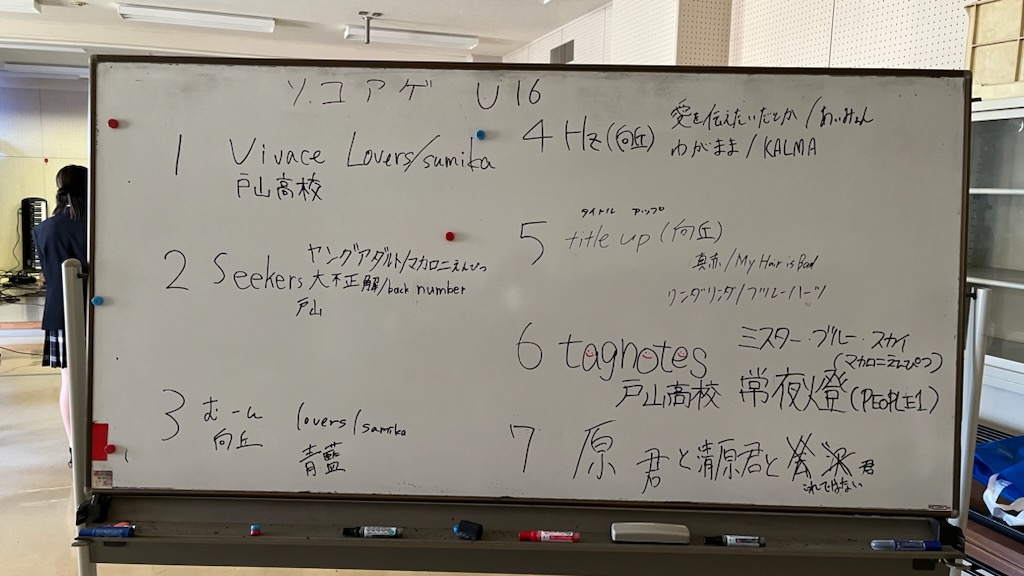 ソコアゲ U16
1 Vivace Lovers/sumika
戸山高校
2 Seekers ヤングアダルト/マカロニえんぴつ
大不正解/back number
戸山
3 むーん lovers/sumika
向丘 青藍
4 Hz(向丘) 愛を伝えたいだとか/あいみょん
わがまま/KALMA
タイトル アップ
5 title up (向丘)
真赤/My Hair is Bad
リンダリンダ/ブルーハーツ
6 tagnotes ミスター・ブルー・スカイ
(マカロニえんぴつ)
戸山高校 常夜燈(PEOPLE1)
7 原君と清原君と 君
これではない